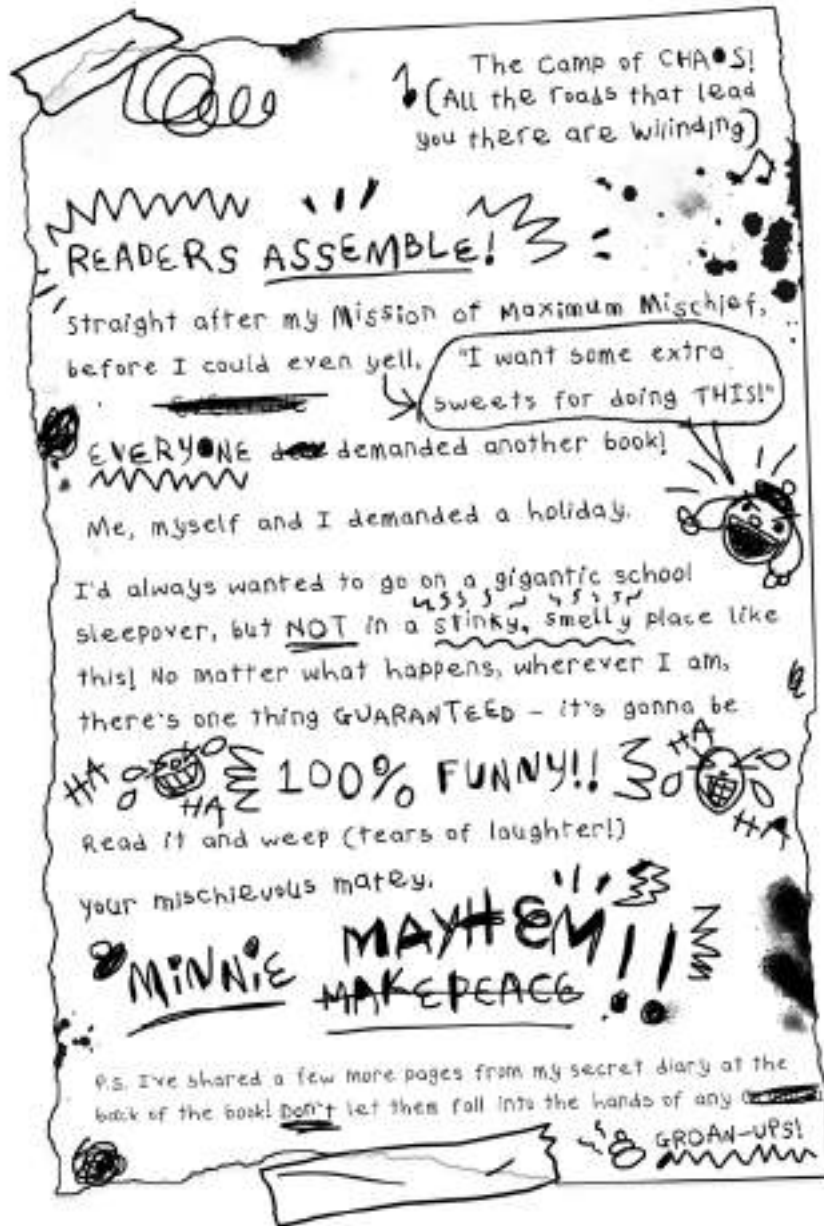 The Camp of CHAOS!
(All the roads that lead
you there are wiiinding)
READERS ASSEMBLE!
Straight after my Mission of Maximum Mischief,
before I could even yell,
"I want some extra
sweets for doing THIS!"
EVERYONE demanded another book!
Me, myself and I demanded a holiday.
I'd always wanted to go on a gigantic school
sleepover, but NOT in a stinky, smelly place like
this! No matter what happens, wherever I am,
there's one thing GUARANTEED – it's gonna be
HA HA 100% FUNNY!! HA HA
Read it and weep (tears of laughter!)
your mischievous matey,
MiNNiE MAYHEM!!
MAKEPEACE
P.S. I've shared a few more pages from my secret diary at the
back of the book! Don't let them fall into the hands of any
GROAN-UPS!